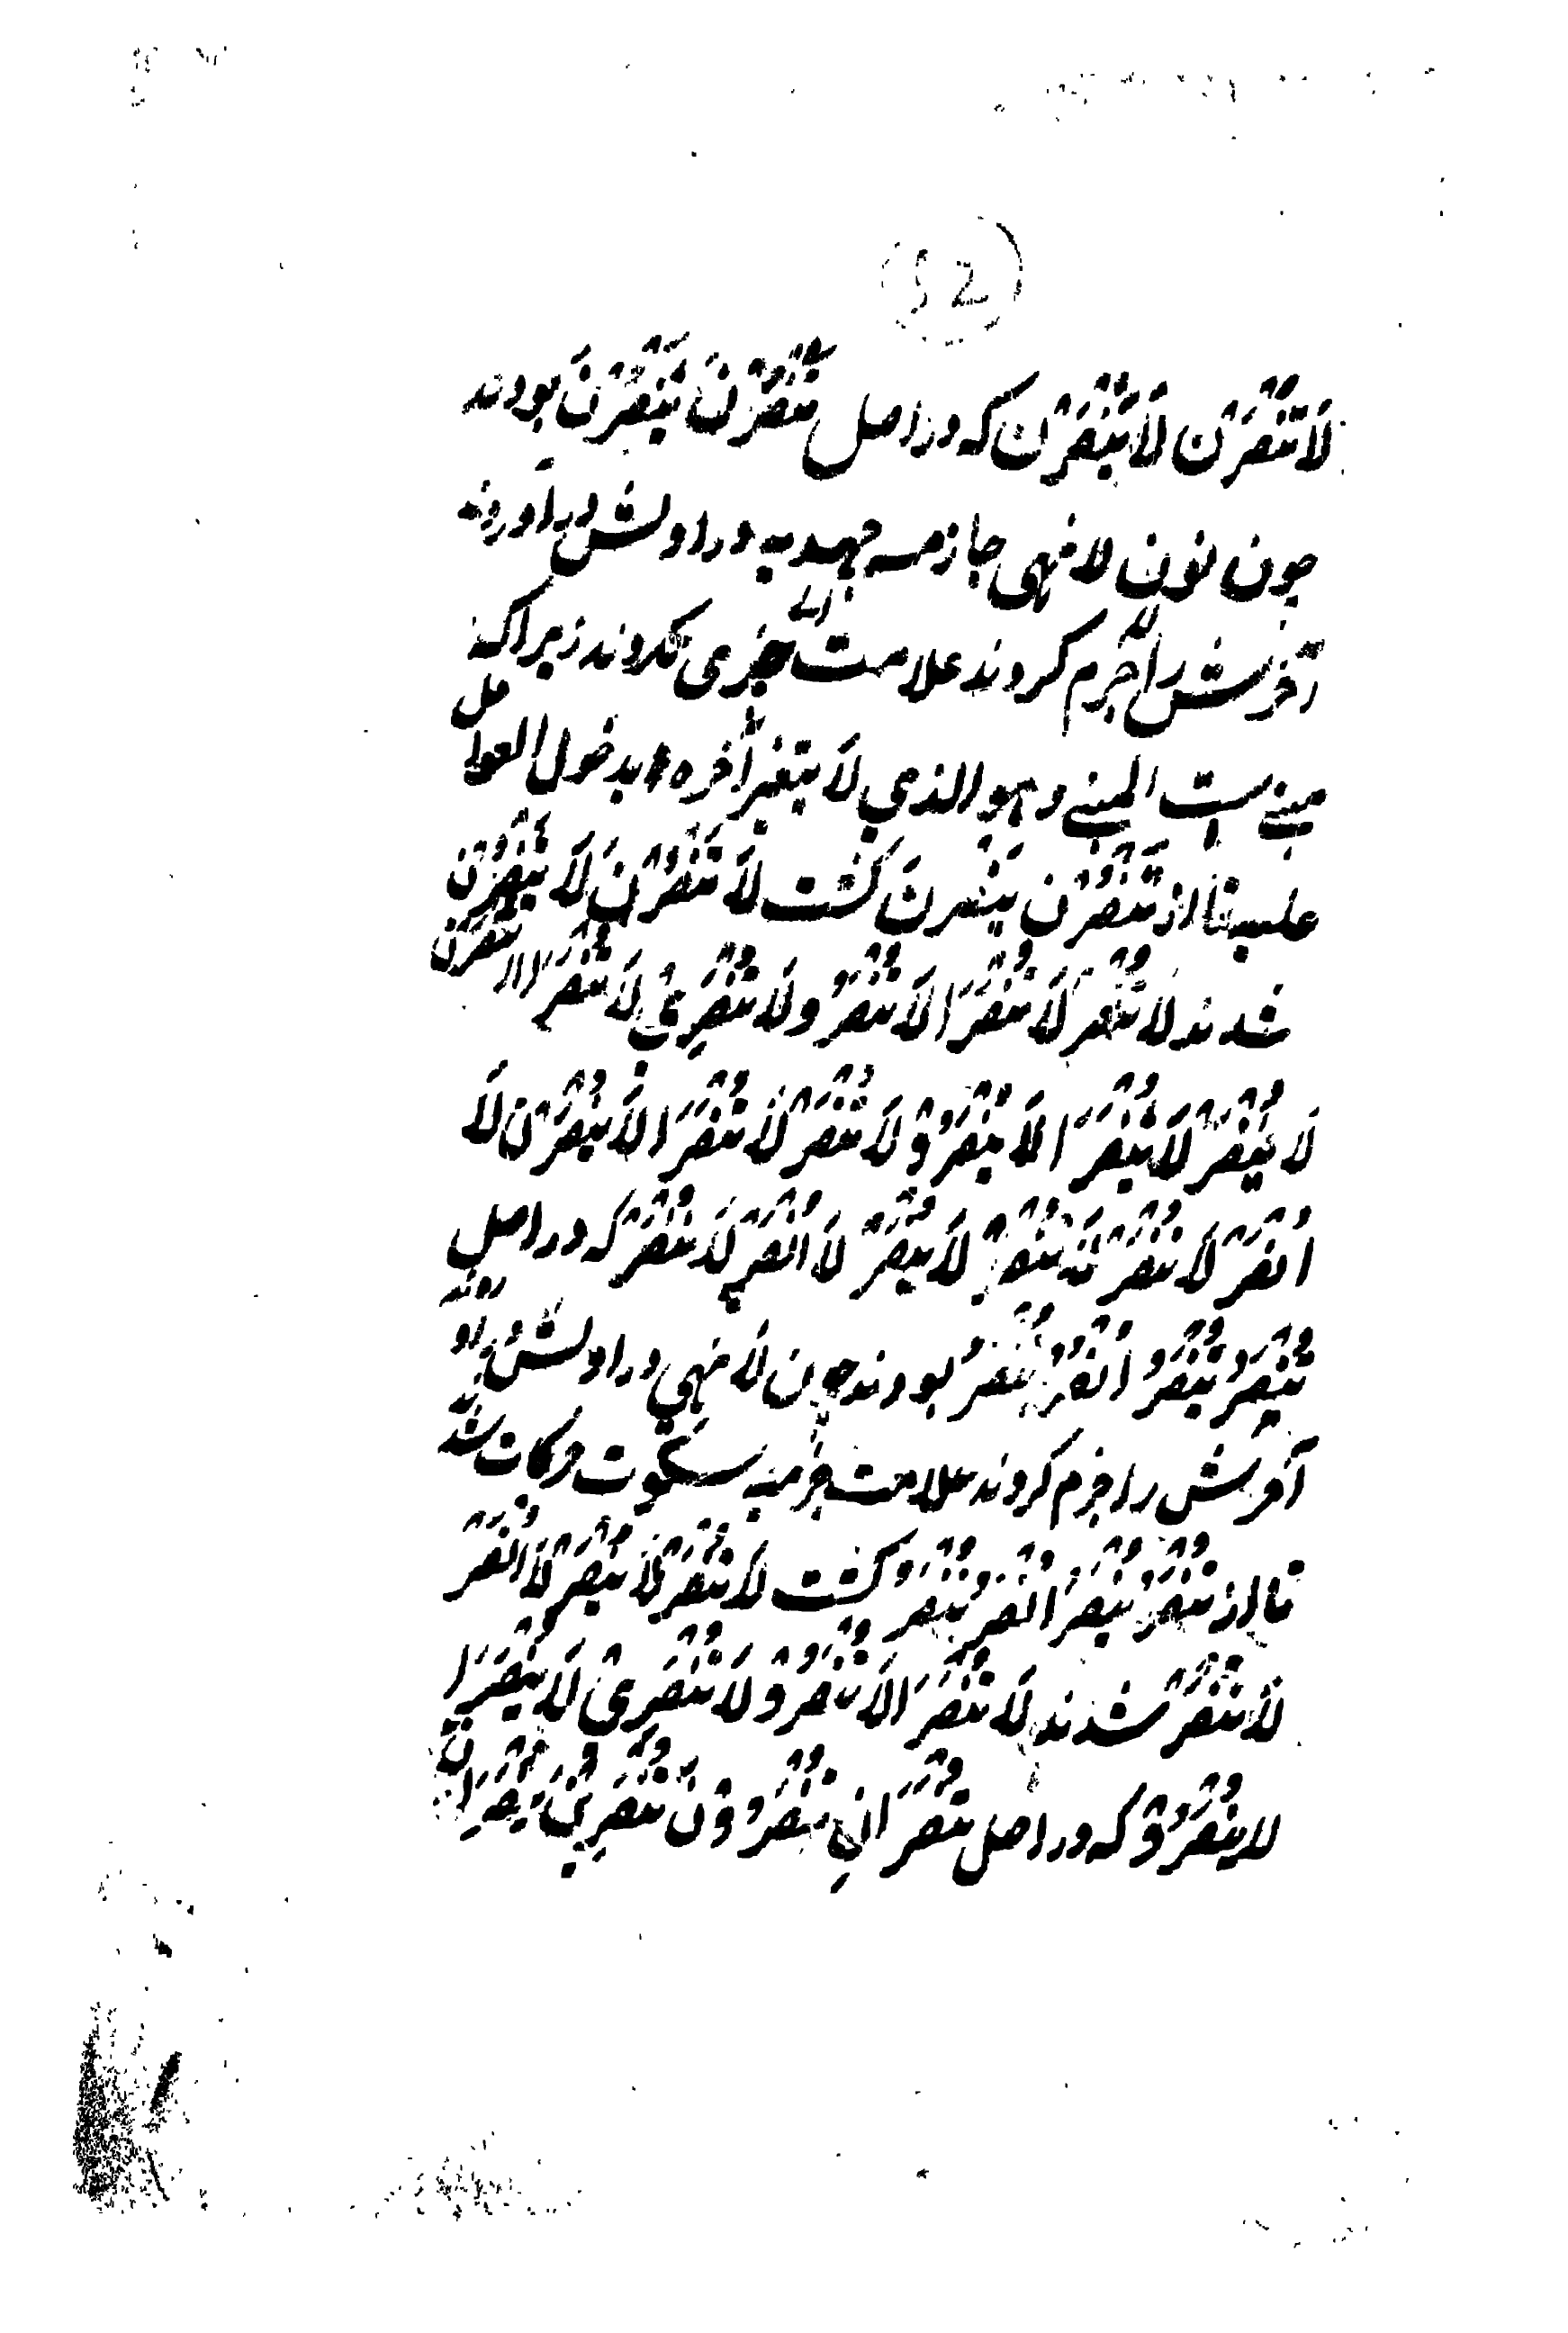 52
لَا تَنْصُرْنَ لَا يَنْصُرْنَ که در اصل تَنْصُرْنَ يَنْصُرْنَ بودند
چون لا نهی جازمه در اولش درآوردند
آخرش را جزم کردند علامت جزمی نکردند زیراکه
مبنی است المبنے وهو الذي لَا يتغير آخره بدخول العوامل
عليه تا از تَنْصُرْنَ يَنْصُرْنَ گشت لَا تَنْصُرْنَ لَا يَنْصُرْنَ
شدند لَا تُنْصَرْ لَا تُنْصَرَا لَا تُنْصَرُوْ لَا تُنْصَرِیْ لَا تُنْصَرَا لَا تُنْصَرْنَ
لَا يُنْصَرْ لَا يُنْصَرَا لَا يُنْصَرُوْ لَا تُنْصَرْ لَا تُنْصَرَا لَا يُنْصَرْنَ لَا
اُنْصَرْ لَا نُنْصَرْ لَا تُنْصَرْ لَا يُنْصَرْ لَا اُنْصَرْ لَا نُنْصَرْ که در اصل
تُنْصَرُ يُنْصَرُ اُنْصَرُ نُنْصَرُ بودند چون لَا نهی در اولش درآوردند
آخرش را جزم کردند علامت جزمی سکوت حرکات شد
تا از تُنْصَرُ يُنْصَرُ اُنْصَرُ نُنْصَرُ گشت لَا تُنْصَرْ لَا يُنْصَرْ لَا اُنْصَرْ
لَا نُنْصَرْ شدند لَا تُنْصَرَا لَا تُنْصَرُوْ لَا تُنْصَرِیْ لَا يُنْصَرَا
لا يُنْصَرُوْ که در اصل تُنْصَرَانِ تُنْصَرُوْنَ تُنْصَرِيْنَ يُنْصَرَانِ